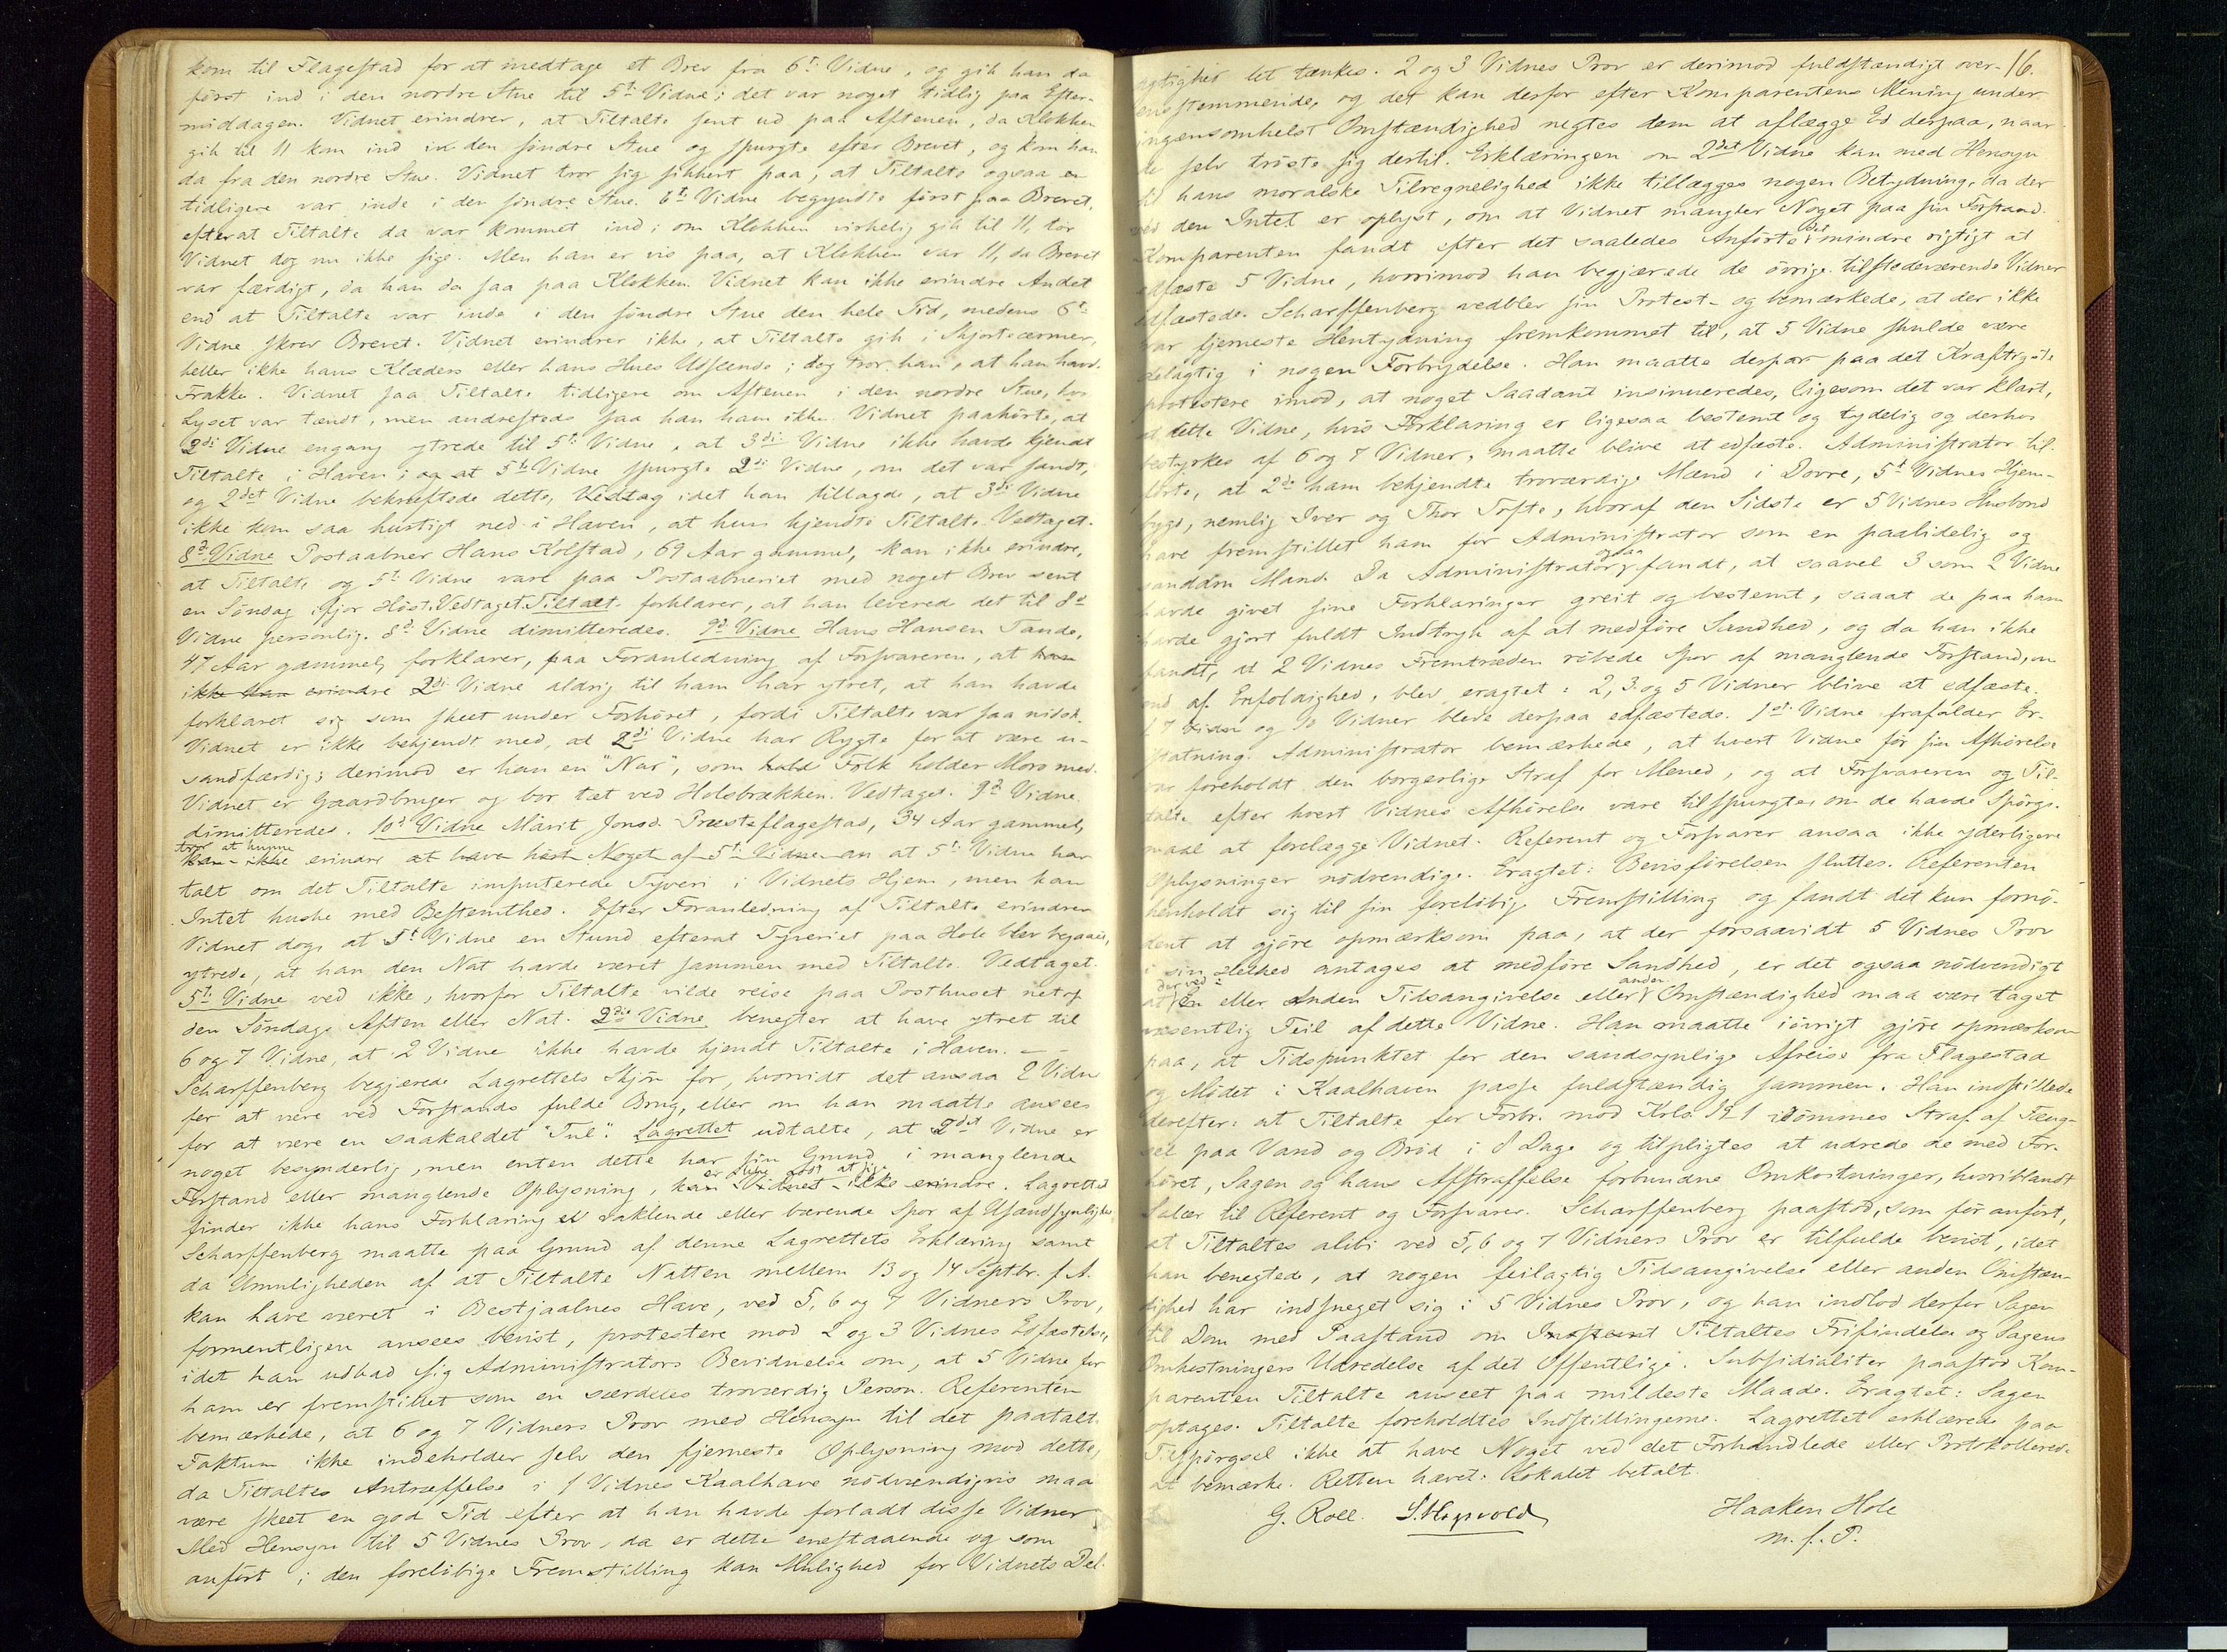 kom til Flagestad for at medtage et Brev fra 6t Vidne, og gik han da
först ind i den nordre Stue til 5t Vidne; det var noget tidlig paa Efter-
middagen. Vidnet erindrer, at Tiltalte sent ud paa Aftenen, da Klokken
gik til 11 kom ind i den söndre Stue og spurgte efter Brevet, og kom han
da fra den nordre Stue. Vidnet tror sig sikkert paa, at Tiltalte ogsaa en
tidligere var inde i den söndre Stue. 6t Vidne begyndte först paa Brevet,
efterat Tiltalte da var kommet ind; om Klokken virkelig gik til 11, tör
Vidnet dog nu ikke sige. Men han er vis paa, at Klokken var 11, da Brevet
var færdigt, da han da saa paa Klokken. Vidnet kan ikke erindre Andet
end at Tiltalte var inde i den söndre Stue den hele Tid, medens 6t
Vidne skrev Brevet. Vidnet erindrer ikke, at Tiltalte gik i Skjorteærmer,
heller ikke hans Klæders eller hans Hues Udseende; dog tror han, at han havde
Frakke. Vidnet saa Tiltalte tidligere om Aftenen i den nordre Stue, hvor
Lyset var tændt, men andrestede saa han ham ikke. Vidnet paahörte, at
2det Vidne engang ytrede til 5t Vidne, at 3die Vidne ikke havde kjendt
Tiltalte i Haven; og at 5t Vidne spurgte 2det Vidne, om det var sandt,
og 2det Vidne bekræftede dette, Vedtag idet han tillagde, at 3die Vidne
ikke kom saa hurtigt ned i Haven, at hun kjendte Tiltalte. Vedtaget.
8d Vidne Postaabner Hans Kolstad, 69 Aar gammel, kan ikke erindre,
at Tiltalte og 5t Vidne vare paa Postaabneriet med noget Brev sent
en Söndag ifjor Höst. Vedtaget. Tiltalt. forklarer, at han leverede det til 8d
Vidne personlig. 8d Vidne dimitteredes. 9d Vidne Hans Hansen Tande,
47 Aar gammel, forklarer, paa Foranledning af Forsvareren, at han
ikke kan erindre 2det Vidne aldrig til ham har ytret, at han havde
forklaret sig som skeet under Forhöret, fordi Tiltalte var saa nidsk.
Vidnet er ikke bekjendt med, at 2det Vidne har Rygte for at være u-
sandfærdig; derimod er han en "Nar", som Folk holder Moro med.
Vidnet er Gaardbruger og bor tæt ved Holsbrækken. Vedtaget. 9d Vidne
dimitteredes. 10d Vidne Marit Jonsd. Præsteflagestad, 34 Aar gammel,
tror at kunne
kan ikke erindre at have hört Noget af 5t Vidne an at 5t Vidne har
talt om det Tiltalte imputerede Tyveri i Vidnets Hjem, men kan
Intet huske med Bestemthed. Efter Foranledning af Tiltalte erindrer
Vidnet dog, at 5t Vidne en Stund efterat Tyveriet paa Hole blev begaaet,
ytrede, at han den Nat havde været sammen med Tiltalte. Vedtaget.
5t Vidne ved ikke, hvorfor Tiltalte vilde reise paa Posthuset netop
den Söndags Aften eller Nat. 2det Vidne benegter at have ytret til
6 og 7 Vidne, at 2 Vidne ikke havde kjendt Tiltalte i Haven. —
Scharffenberg begjærede Lagrettets Skjön for, hvorvidt det ansaa 2 Vidne
for at være ved Forstands fulde Brug, eller om han maatte ansees
for at være en saakaldet "Tul". Lagrettet udtalte, at 2det Vidne er
noget besynderlig, men enten dette har sin Grund i manglende
er ikke godt at sige
Forstand eller manglende Oplysning, kan Vidnet ikke erindre. Lagrettet
finder ikke hans Forklaring at vaklende eller bærende Spor af Usandsynlighed
Scharffenberg maatte paa Grund af denne Lagrettets Erklæring samt
da Umuligheden af at Tiltalte Natten mellem 13 og 14 Septbr. f. A.
kan have været i Bestjaalnes Have, ved 5, 6 og 7 Vidners Prov,
formentligen ansees bevist, protestere mod 2 og 3 Vidnes Edfæstelse,
idet han udbad sig Administrators Bevidnelse om, at 5 Vidne for
ham er fremstillet som en særdeles troværdig Person. Referenten
bemærkede, at 6 og 7 Vidners Prov med Hensyn til det paatalte
Faktum ikke indeholder selv den fjerneste Oplysning mod dette,
da Tiltaltes Antræffelse i 1 Vidnes Kaalhave nödvendigvis maa
være skeet en god Tid efter at han havde forladt disse Vidner
Med Hensyn til 5 Vidnes Prov, da er dette enestaaende og som
anfört i den forelöbige Fremstilling kan Mulighed for Vidnets Del-
16.
agtighet let tænkes. 2 og 3 Vidnes Prov er derimod fuldstændigt over-
ensstemmende, og det kan derfor efter Komparentens Mening under
ingensomhelst Omstændighed negtes dem at aflægge Ed derpaa, naar
de selv tröste sig dertil. Erklæringen om 2det Vidne kan med Hensyn
til hans moralske Tilregnelighed ikke tillægges nogen Betydning, da der
ved den Intet er oplyst, om at Vidnet mangler Noget paa sin Forstand.
Komparenten fandt efter det saaledes Anförte det mindre rigtigt at
edfæste 5 Vidne, hvorimod han begjærede de övrige tilstedeværende Vidner
edfæstede. Scharffenberg vedblev sin Protest og bemærkede, at der ikke
var fjerneste Hentydning fremkommet til, at 5 Vidne skulde være
delagtig i nogen Forbrydelse. Han maatte derfor paa det Kraftigste
protestere imod, at noget Saadant insinueredes, ligesom det var klart,
at dette Vidne, hvis Forklaring er ligesaa bestemt og tydelig og derhos
bestyrkes af 6 og 7 Vidner, maatte blive at edfæste. Administrator til-
förte, at 2de ham bekjendte troværdige Mænd i Dovre, 5t Vidnes Hjem-
bygd, nemlig Iver og Thor Tofte, hvoraf den Sidste er 5 Vidnes Husbond
have fremstillet ham for Administrator som en paalidelig og
sanddru Mand. Da Administrator ogsaa fandt, at saavel 3 som 2 Vidne
havde givet sine Forklaringer greit og bestemt, saaat de paa ham
havde gjort fuldt Indtryk af at medföre Sandhed, og da han ikke
fandt, at 2 Vidnes Fremtræden röbede Spor af manglende Forstand, om
end af Enfoldighed, blev eragtet: 2, 3 og 5 Vidner blive at edfæste.
7 og 10 Vidner bleve derpaa edfæstede. 1st Vidne frafalder Er-
statning. Administrator bemærkede, at hvert Vidne för sin Afhörelse
var foreholdt den borgerlige Straf for Mened, og at Forsvareren og Til-
talte efter hvert Vidnes Afhörelse vare tilspurgte, om de havde Spörgs-
maal at forelægge Vidnet. Referent og Forsvarer ansaa ikke yderligere
Oplysninger nödvendige. Eragtet: Bevisförelsen sluttes. Referenten
henholdt sig til sin forelöbige Fremstilling og fandt det kun fornö-
dent at gjöre opmærksom paa, at der forsaavidt 5 Vidnes Prov
i sin Helhed antages at medföre Sandhed, er det ogsaa nödvendigt
derved anden
at En eller Anden Tidsangivelse eller Omstændighed maa være taget
væsentlig Feil af dette Vidne. Han maatte iövrigt gjöre opmærksom
paa, at Tidspunktet for den sandsynlige Afreise fra Flagestad
og Mödet i Kaalhaven passe fuldstændig sammen. Han indstillede
derefter: at Tiltalte for Forbr. mod Krls. 19 1 idömmes Straf af Fæng-
sel paa Vand og Bröd i 8 Dage og tilpligtes at udrede de med For-
höret, Sagen og hans Afstraffelse forbundne Omkostninger, hvoriblandt
Salær til Referent og Forsvarer. Scharffenberg paastod, som för anfört,
at Tiltaltes alibi ved 5, 6 og 7 Vidners Prov er tilfulde bevist, idet
han benegtede, at nogen feilagtig Tidsangivelse eller anden Omstæn-
dighed har indsneget sig i 5 Vidnes Prov, og han indlod derfor Sagen
til Dom med Paastand om Tiltaltes Frifindelse og Sagens
Omkostningers Udredelse af det Offentlige. Subsidialiter paastod Kom-
parenten Tiltalte anseet paa mildeste Maade. Eragtet: Sagen
optages. Tiltalte foreholdtes Indstillingerne. Lagrettet erklærede paa
Tilspörgsel ikke at have Noget ved det Forhandlede eller Protokollerede
at bemærke. Retten hævet. Lokalet betalt.
G. Roll. Haaken Hole
m. f. P.